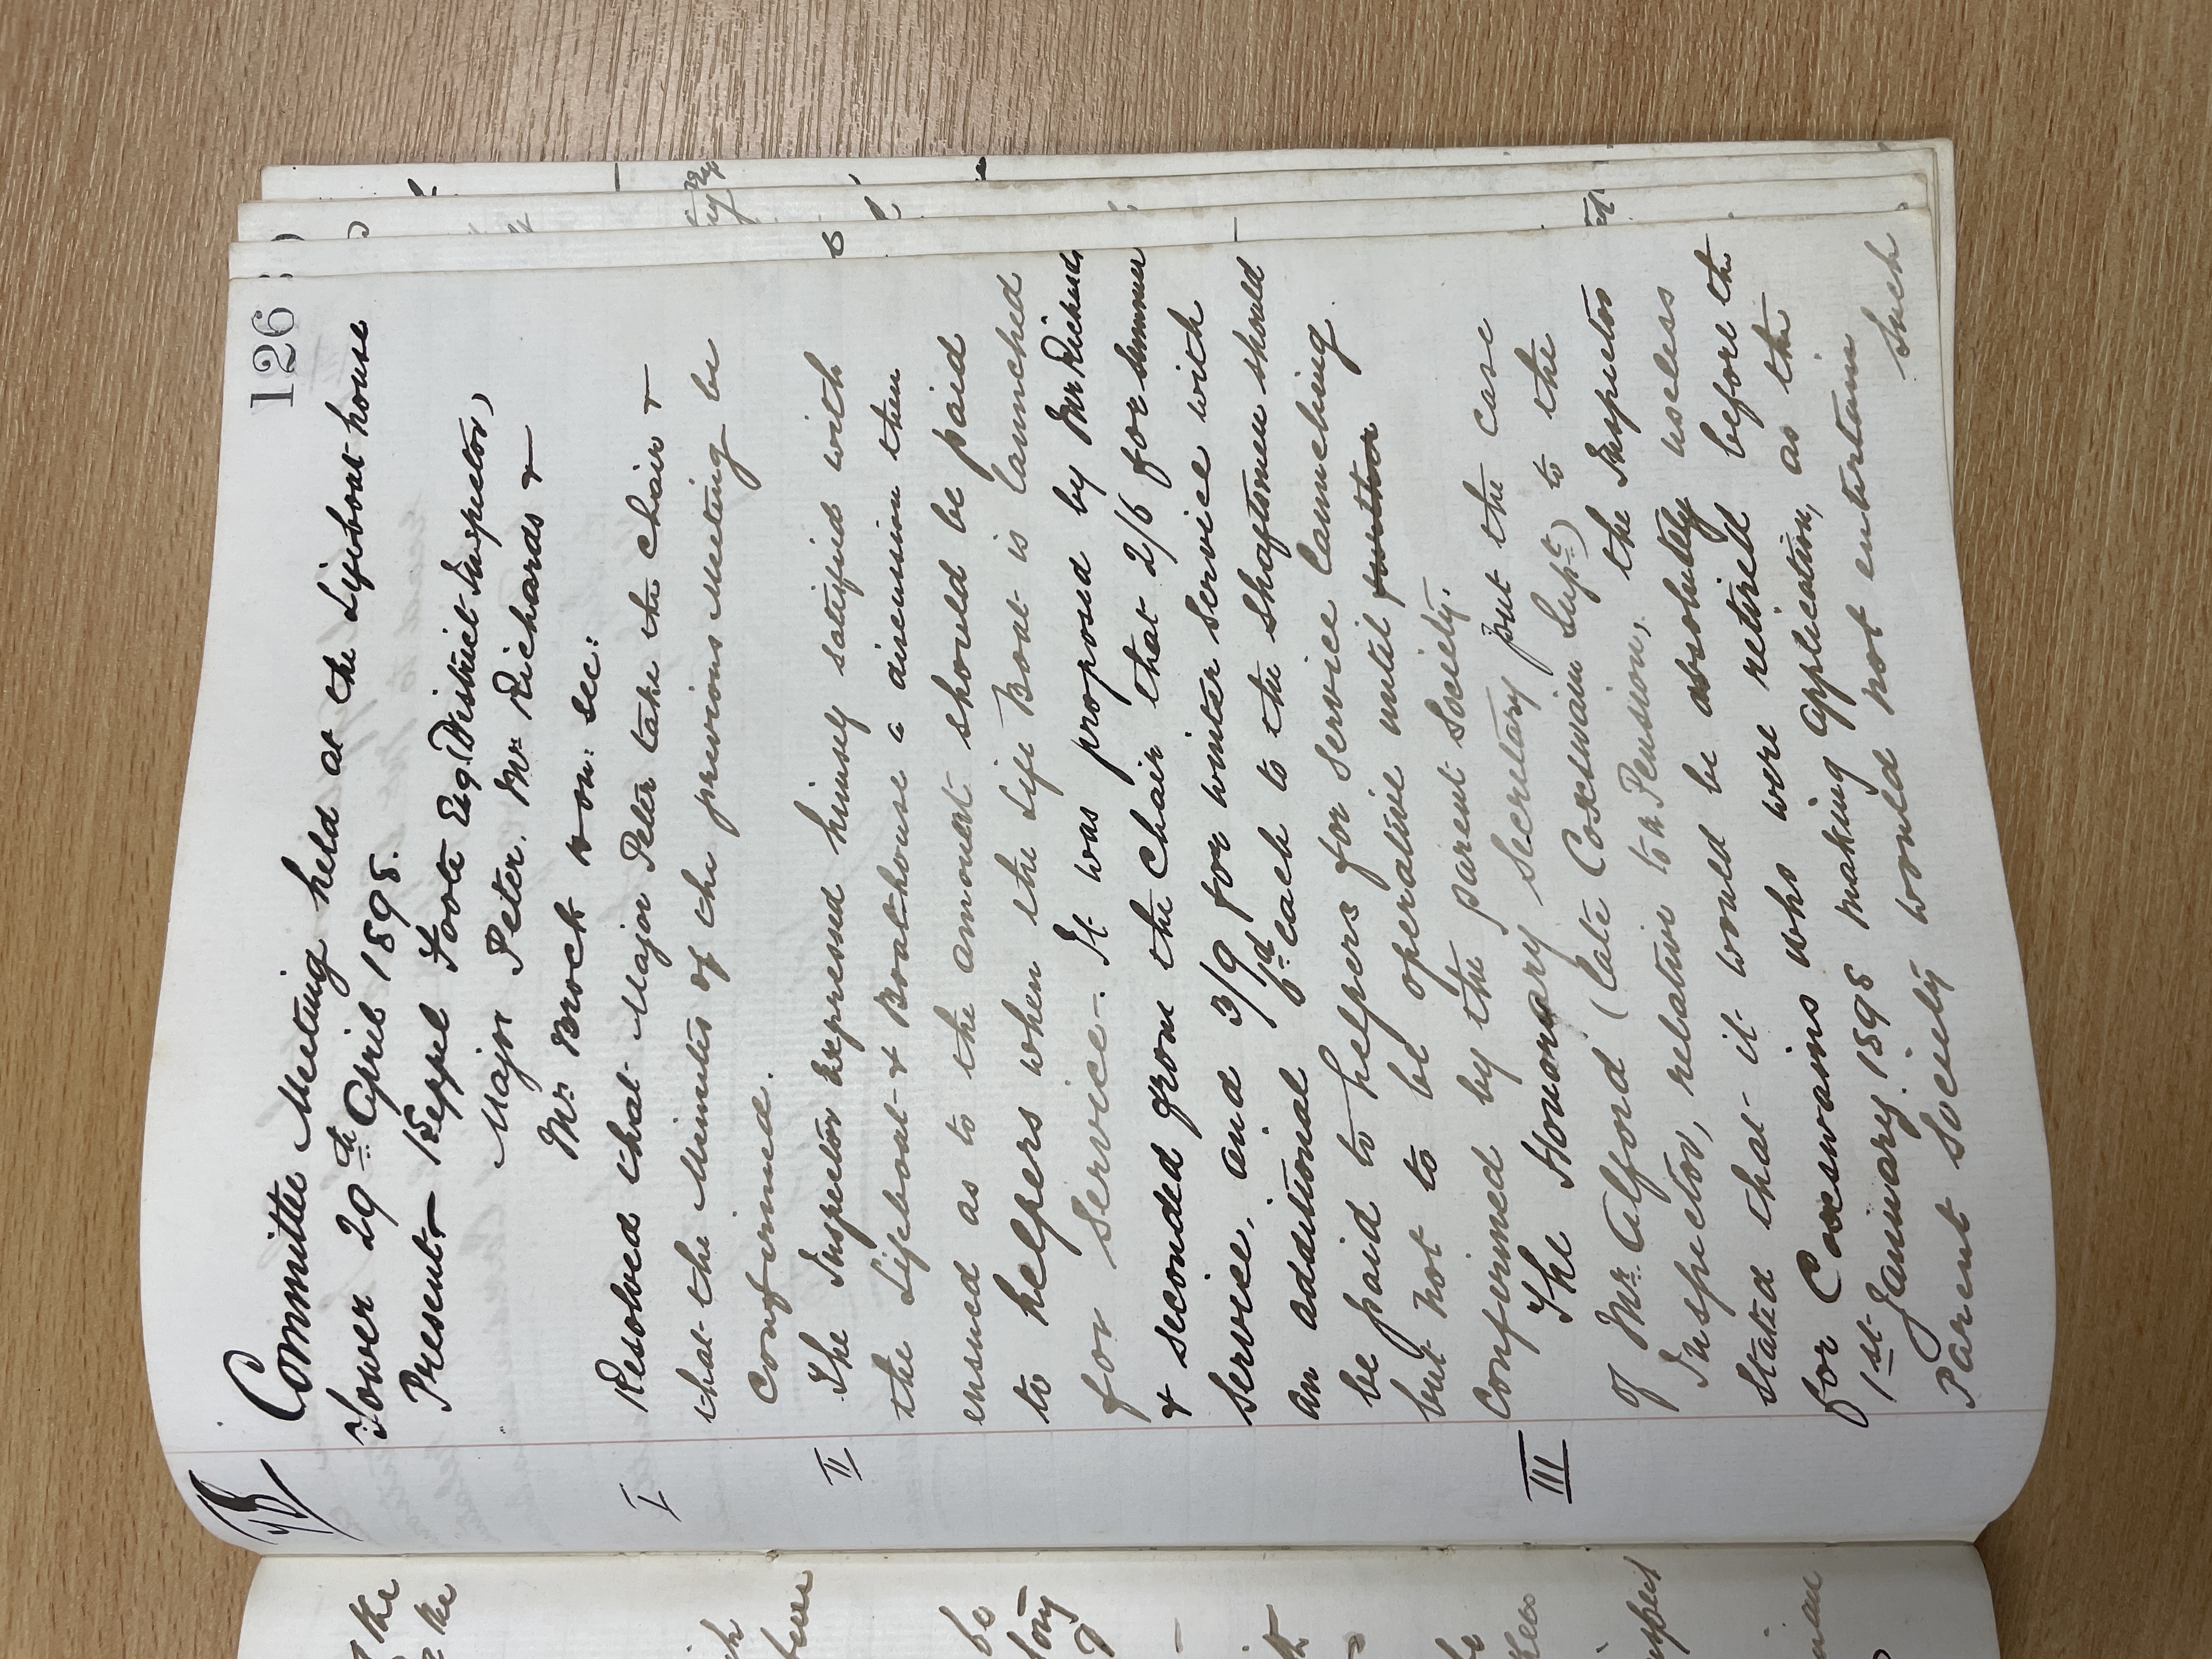 126
Committee Meeting held at the Lifeboat house
Tower 29th April 1898.
Present - Keppel Foote Esq. (District Inspector)
Major Peter. Mr Richards &
Mr Brock Hon: Sec:
I Resolved that Major Peter take the Chair &
that the Minutes of the previous Meeting be
Confirmed.
II The Inspector expressed himself satisfied with
the Lifeboat & Boathouse a discussion then
ensued as to the amount should be paid
to helpers when the Life Boat is launched
for Service -. It was proposed by Mr Richards
& seconded from the Chair that 2/6 for summer
service, and 3/9 for winter service with
an additional 6d each to the shaftsmen should
be paid to helpers for service launching
but not to be operative until further
confirmed by the parent Society.
III The Honorary Secretary put the case
of Mr Alford (late Coxswain Supt) to the
Inspector, relative to a Pension, the Inspector
stated that it would be absolutely useless
for Coxswains who were retired before the
1st January 1898 making application, as the
Parent Society would not entertain such
the
the
be
long